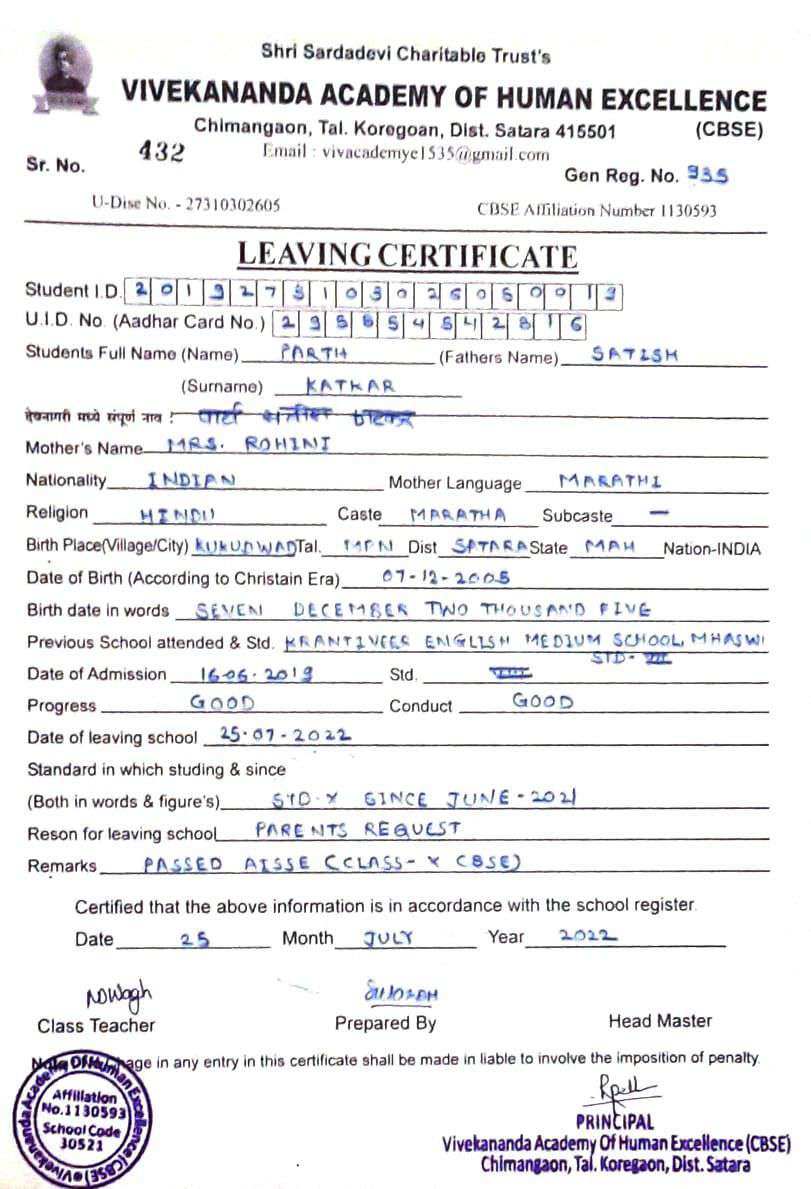 Shri Sardadevi Charitable Trust's
VIVEKANANDA ACADEMY OF HUMAN EXCELLENCE
Chimangaon, Tal. Koregoan, Dist. Satara 415501 (CBSE)
Sr. No. 432 Email : vivacademye1535@gmail.com
Gen Reg. No. 935
U-Dise No. - 27310302605 CBSE Affiliation Number 1130593
LEAVING CERTIFICATE
Student I.D. 2019273103026050019
U.I.D. No. (Aadhar Card No.) 295854542816
Students Full Name (Name) PARTH (Fathers Name) SATISH
(Surname) KATKAR
देवनागरी मध्ये संपूर्ण नाव :
Mother's Name MRS. ROHINI
Nationality INDIAN Mother Language MARATHI
Religion HINDU Caste MARATHA Subcaste —
Birth Place(Village/City) KUKUDWAD Tal. MAN Dist SATARA State MAH Nation-INDIA
Date of Birth (According to Christain Era) 07-12-2005
Birth date in words SEVEN DECEMBER TWO THOUSAND FIVE
Previous School attended & Std. KRANTIVEER ENGLISH MEDIUM SCHOOL, MHASWI
STD-
Date of Admission 16-06-2019 Std.
Progress GOOD Conduct GOOD
Date of leaving school 25-07-2022
Standard in which studing & since
(Both in words & figure's) STD-X SINCE JUNE-2021
Reson for leaving school PARENTS REQUEST
Remarks PASSED AISSE (CLASS-X CBSE)
Certified that the above information is in accordance with the school register.
Date 25 Month JULY Year 2022
Class Teacher Prepared By Head Master
age in any entry in this certificate shall be made in liable to involve the imposition of penalty.
Vivekananda Academy Of Human Excellence (CBSE)
Affiliation
No.1130593
School Code
30521
PRINCIPAL
Vivekananda Academy Of Human Excellence (CBSE)
Chimangaon, Tal. Koregaon, Dist. Satara